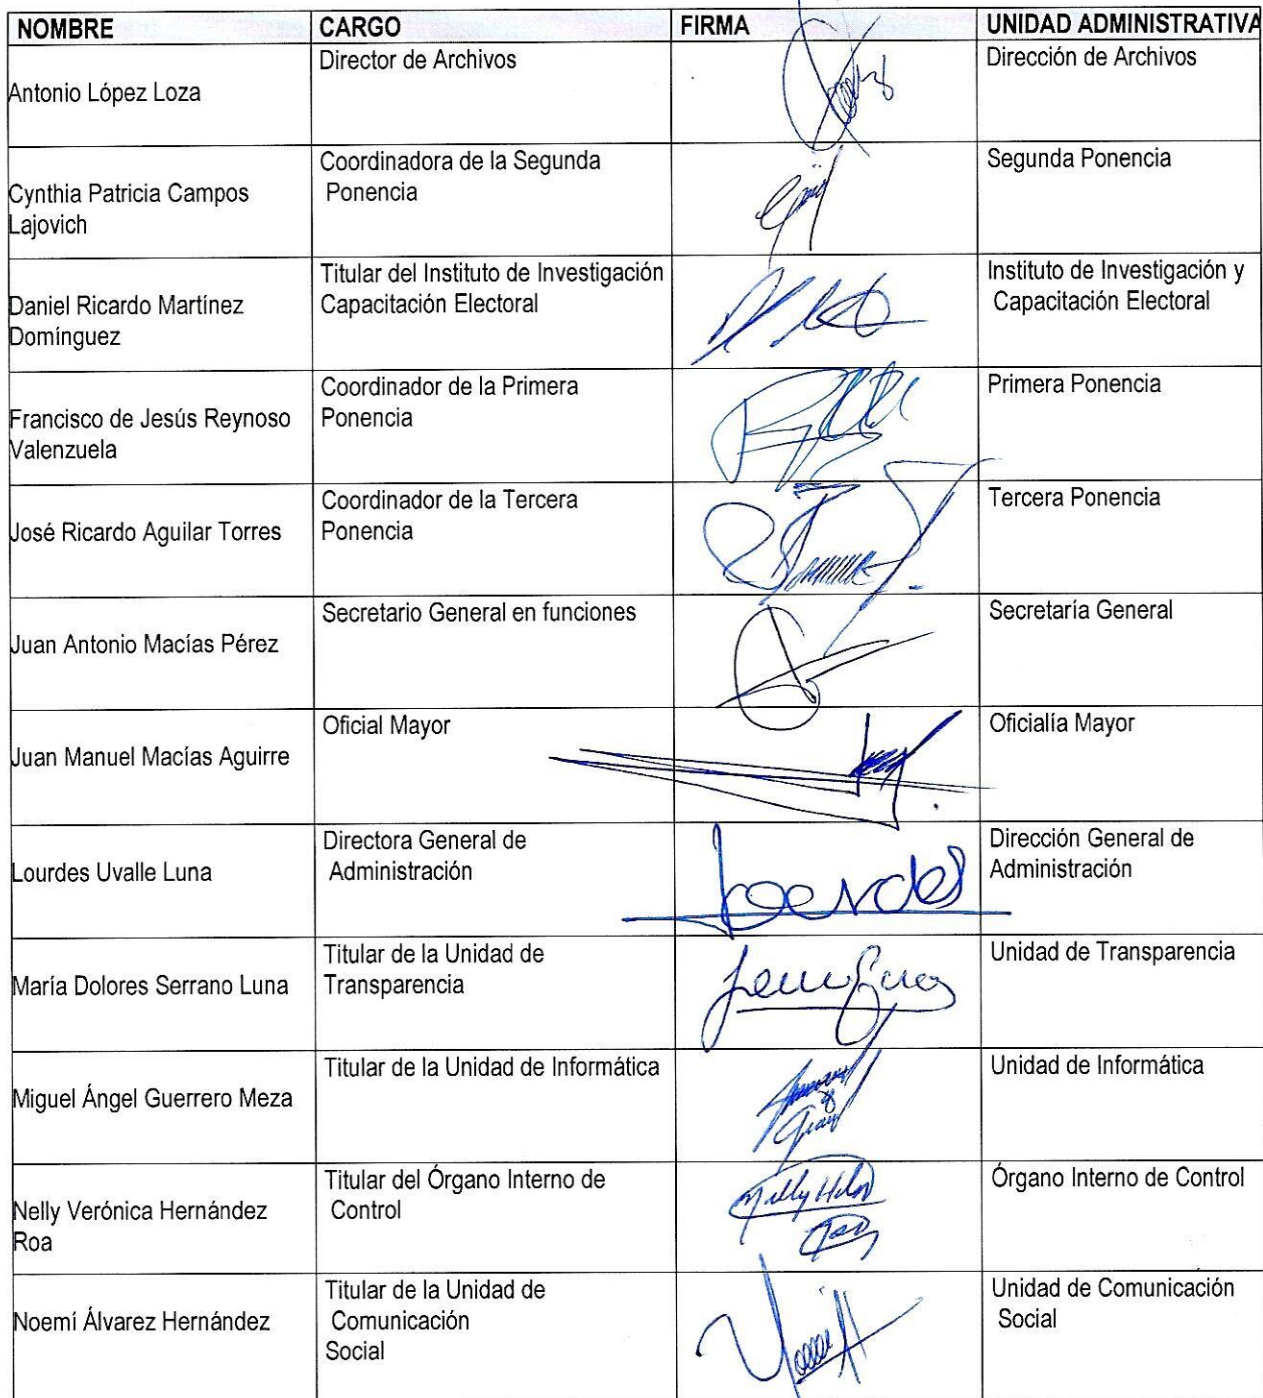 NOMBRE CARGO FIRMA UNIDAD ADMINISTRATIVA
Antonio López Loza
Director de Archivos
Dirección de Archivos
Cynthia Patricia Campos
Lajovich
Coordinadora de la Segunda
Ponencia
Segunda Ponencia
Daniel Ricardo Martínez
Domínguez
Titular del Instituto de Investigación
Capacitación Electoral
Instituto de Investigación y
Capacitación Electoral
Francisco de Jesús Reynoso
Valenzuela
Coordinador de la Primera
Ponencia
Primera Ponencia
José Ricardo Aguilar Torres
Coordinador de la Tercera
Ponencia
Tercera Ponencia
Juan Antonio Macías Pérez
Secretario General en funciones
Secretaría General
Juan Manuel Macías Aguirre
Oficial Mayor
Oficialía Mayor
Lourdes Uvalle Luna
Directora General de
Administración
Dirección General de
Administración
María Dolores Serrano Luna
Titular de la Unidad de
Transparencia
Unidad de Transparencia
Miguel Ángel Guerrero Meza
Titular de la Unidad de Informática
Unidad de Informática
Nelly Verónica Hernández
Roa
Titular del Órgano Interno de
Control
Órgano Interno de Control
Noemí Álvarez Hernández
Titular de la Unidad de
Comunicación
Social
Unidad de Comunicación
Social